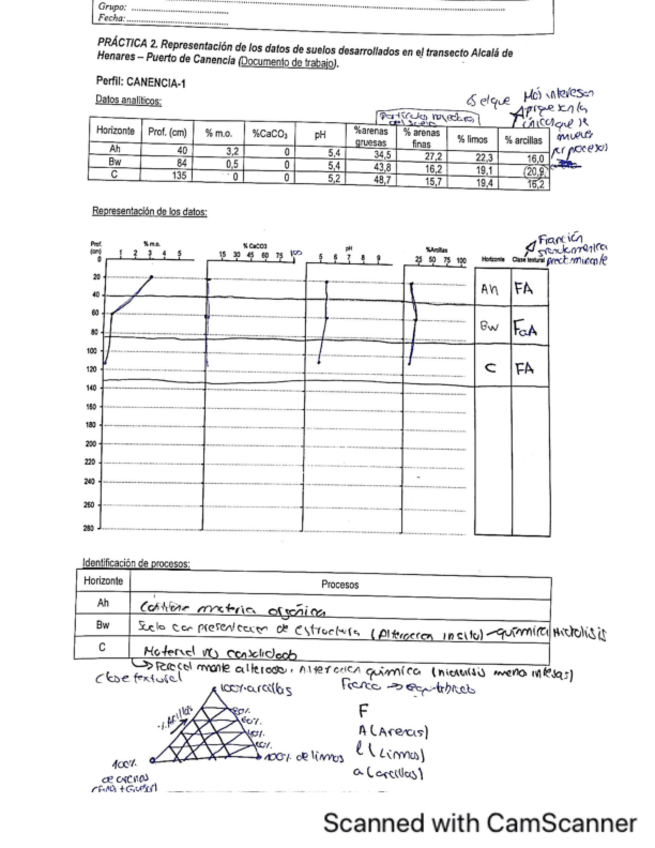 Grupo:
Fecha:
PRÁCTICA 2. Representación de los datos de suelos desarrollados en el transecto Alcalá de
Henares – Puerto de Canencia (Documento de trabajo).
Perfil: CANENCIA-1
Datos analíticos:
es el que
Más interesan
Horizonte Prof. (cm) % m.o. %CaCO3 pH %arenas gruesas % arenas finas % limos % arcillas
Ah 40 3,2 0 5,4 34,5 27,2 22,3 16,0
Bw 84 0,5 0 5,4 43,8 16,2 19,1 (20,9)
C 135 0 0 5,2 48,7 15,7 19,4 16,2
Representación de los datos:
Fracción
Prof. (cm) % m.o. % CaCO3 pH %Arcillas Horizonte Clase textural
1 2 3 4 5 15 30 45 60 75 100 5 6 7 8 9 25 50 75 100
20
40
60
80
100
120
140
160
180
200
220
240
260
280
Ah FA
Bw FaA
C FA
Identificación de procesos:
Horizonte Procesos
Ah Contiene materia orgánica
Bw Suelo con presentacion de estructura (Alteracion insito) – química Hidrolisis
C Material no consolidado
Parcial mente alterado. Alteración química (hidrolisis menos intesas)
Clase textural
100% arcillas
Franco → equilibrados
% Arcillas
80%
60%
40%
20%
100%
de arenas
(Finas + Gruesas)
100% de limos
F
A (Arenas)
l (Limos)
a (arcillas)
Scanned with CamScanner